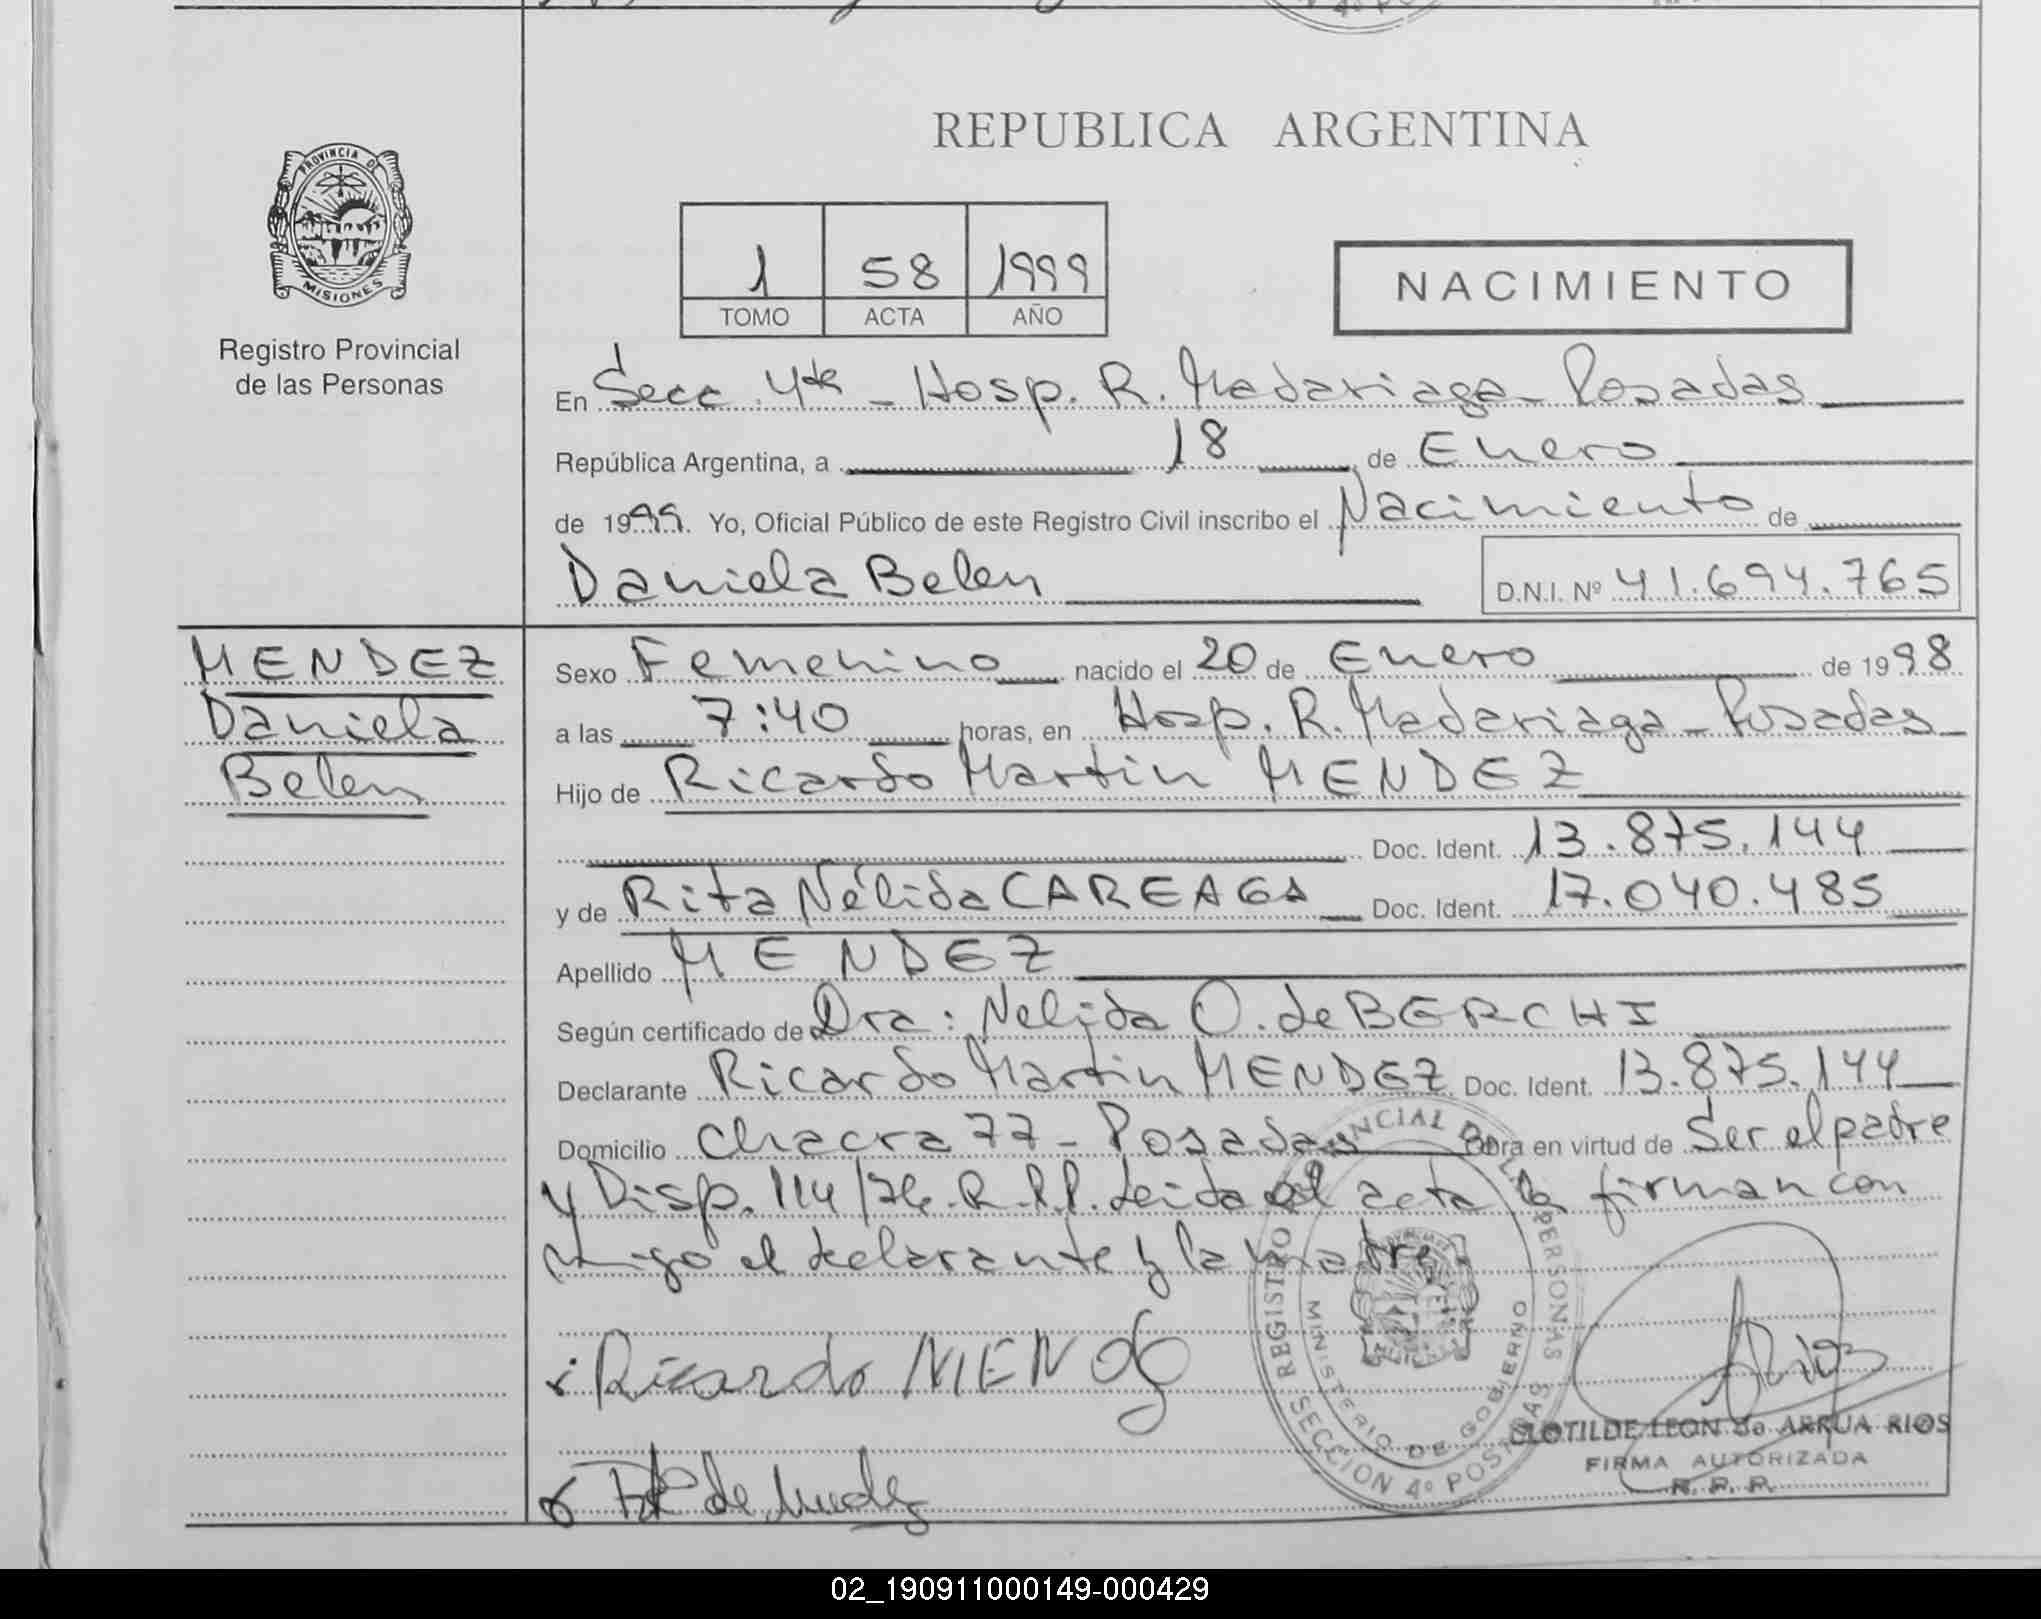 REPUBLICA ARGENTINA
PROVINCIA DE
MISIONES
Registro Provincial
de las Personas
1 58 1999
TOMO ACTA AÑO
NACIMIENTO
En Secc. 4ta - Hosp. R. Madariaga - Posadas
República Argentina, a 18 de Enero
de 1999. Yo, Oficial Público de este Registro Civil inscribo el Nacimiento de
Daniela Belen D.N.I. Nº 41.694.765
MENDEZ
Daniela
Belen
Sexo Femenino nacido el 20 de Enero de 1998
a las 7:40 horas, en Hosp. R. Madariaga - Posadas
Hijo de Ricardo Martin MENDEZ
Doc. Ident. 13.875.144
y de Rita Nélida CAREAGA Doc. Ident. 17.040.485
Apellido MENDEZ
Según certificado de Dra: Nelida O. de BERCHI
Declarante Ricardo Martin MENDEZ Doc. Ident. 13.875.144
Domicilio Chacra 77 - Posadas Obra en virtud de Ser el padre
y Disp. 114/76. R.P.P. Leida el acta la firman con
migo el declarante y la madre
Ricardo MENDEZ
de Mendez
REGISTRO PROVINCIAL DE LAS PERSONAS
MINISTERIO DE GOBIERNO
SECCION 4º POSADAS
CLOTILDE LEON de ARRUA RIOS
FIRMA AUTORIZADA
R. P. P.
02_190911000149-000429